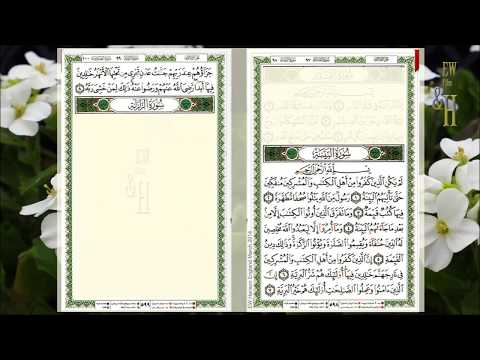 سُورَةُ البَيِّنَةِ
بِسْمِ اللَّهِ الرَّحْمَٰنِ الرَّحِيمِ
لَمْ يَكُنِ الَّذِينَ كَفَرُوا مِنْ أَهْلِ الْكِتَابِ وَالْمُشْرِكِينَ مُنفَكِّينَ
حَتَّىٰ تَأْتِيَهُمُ الْبَيِّنَةُ ١ رَسُولٌ مِّنَ اللَّهِ يَتْلُو صُحُفًا مُّطَهَّرَةً
٢ فِيهَا كُتُبٌ قَيِّمَةٌ ٣ وَمَا تَفَرَّقَ الَّذِينَ أُوتُوا الْكِتَابَ إِلَّا مِن
بَعْدِ مَا جَاءَتْهُمُ الْبَيِّنَةُ ٤ وَمَا أُمِرُوا إِلَّا لِيَعْبُدُوا اللَّهَ مُخْلِصِينَ
لَهُ الدِّينَ حُنَفَاءَ وَيُقِيمُوا الصَّلَاةَ وَيُؤْتُوا الزَّكَاةَ وَذَٰلِكَ دِينُ
الْقَيِّمَةِ ٥ إِنَّ الَّذِينَ كَفَرُوا مِنْ أَهْلِ الْكِتَابِ وَالْمُشْرِكِينَ
فِي نَارِ جَهَنَّمَ خَالِدِينَ فِيهَا أُولَٰئِكَ هُمْ شَرُّ الْبَرِيَّةِ ٦ إِنَّ
الَّذِينَ آمَنُوا وَعَمِلُوا الصَّالِحَاتِ أُولَٰئِكَ هُمْ خَيْرُ الْبَرِيَّةِ ٧
٥٩٨
جَزَاؤُهُمْ عِندَ رَبِّهِمْ جَنَّاتُ عَدْنٍ تَجْرِي مِن تَحْتِهَا الْأَنْهَارُ خَالِدِينَ
فِيهَا أَبَدًا رَّضِيَ اللَّهُ عَنْهُمْ وَرَضُوا عَنْهُ ذَٰلِكَ لِمَنْ خَشِيَ رَبَّهُ ٨
سُورَةُ الزَّلْزَلَةِ
٥٩٩
EW Harlem England March 2014
EW
&
H